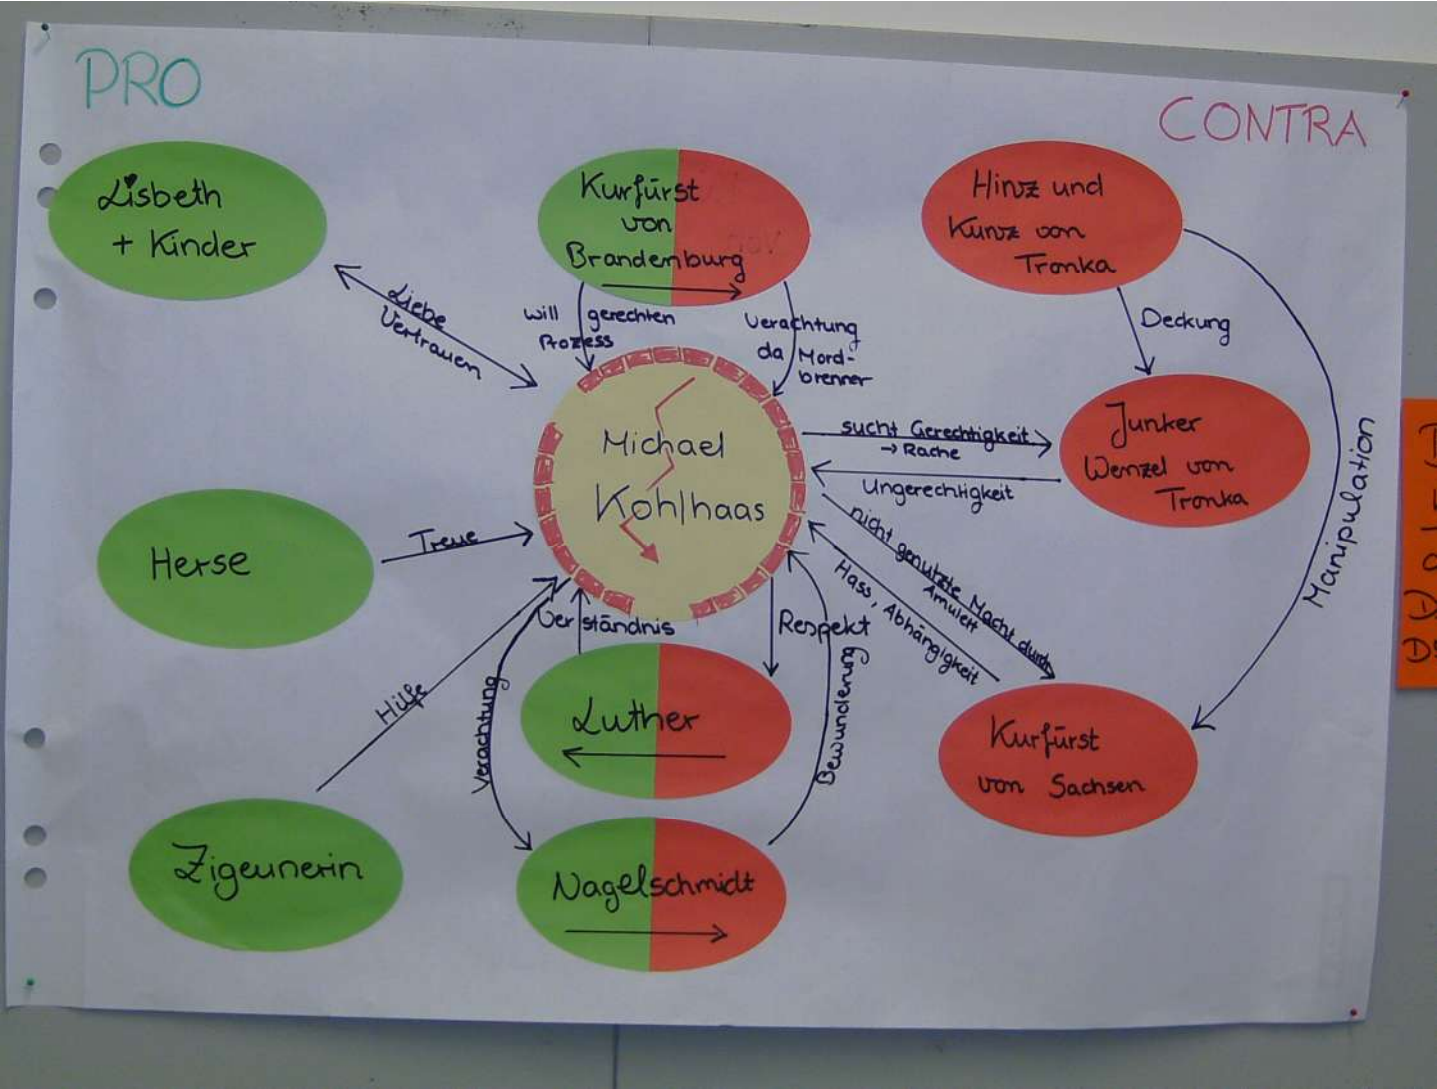 PRO
CONTRA
Lisbeth
+ Kinder
Kurfürst
von
Brandenburg
Hinz und
Kunz von
Tronka
Liebe
Vertrauen
will gerechten
Prozess
Verachtung
da Mord-
brenner
Deckung
Manipulation
Michael
Kohlhaas
sucht Gerechtigkeit
→ Rache
Ungerechtigkeit
Junker
Wenzel von
Tronka
Herse
Treue
nicht genutzte Macht durch
Amulett
Hass, Abhängigkeit
Verständnis
Respekt
Hilfe
Verachtung
Luther
Bewunderung
Kurfürst
von Sachsen
Zigeunerin
Nagelschmidt